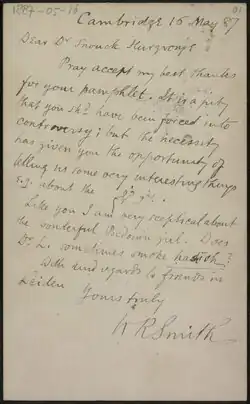 1887-05-16
01
Cambridge 16 May 87
Dear Dr Snouck Hurgronje
Pray accept my best thanks
for your pamphlet. It is a pity
that you shd have been forced into
controversy; but the necessity
has given you the opportunity of
telling us some very interesting things
e.g. about the
Like you I am very sceptical about
the wonderful Bedouin girl. Does
Dr L. sometimes smoke hashish?
With kind regards to friends in
Leiden
Yours truly
W R Smith